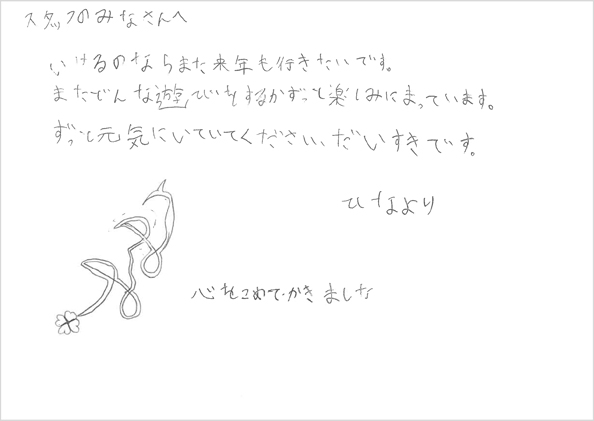 スタッフのみなさんへ
いけるのならまた来年も行きたいです。
またどんな遊びをするかずっと楽しみにまっています。
ずっと元気にいていてください、だいすきです。
ひなより
心をこめてかきました